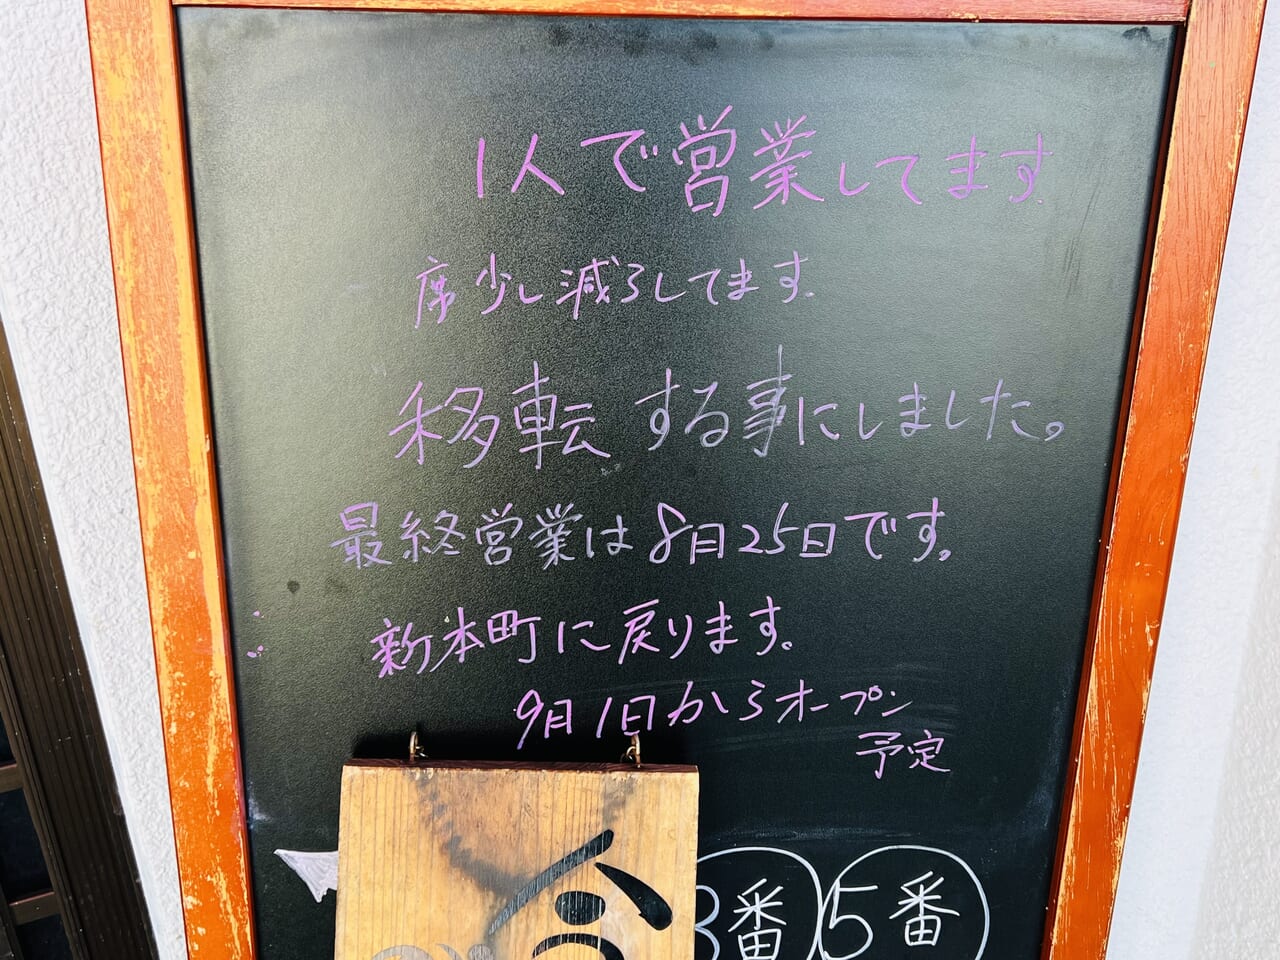 1人で営業してます
席少し減らしてます。
移転する事にしました。
最終営業は8月25日です。
新本町に戻ります。
9月1日からオープン
予定
3番 5番